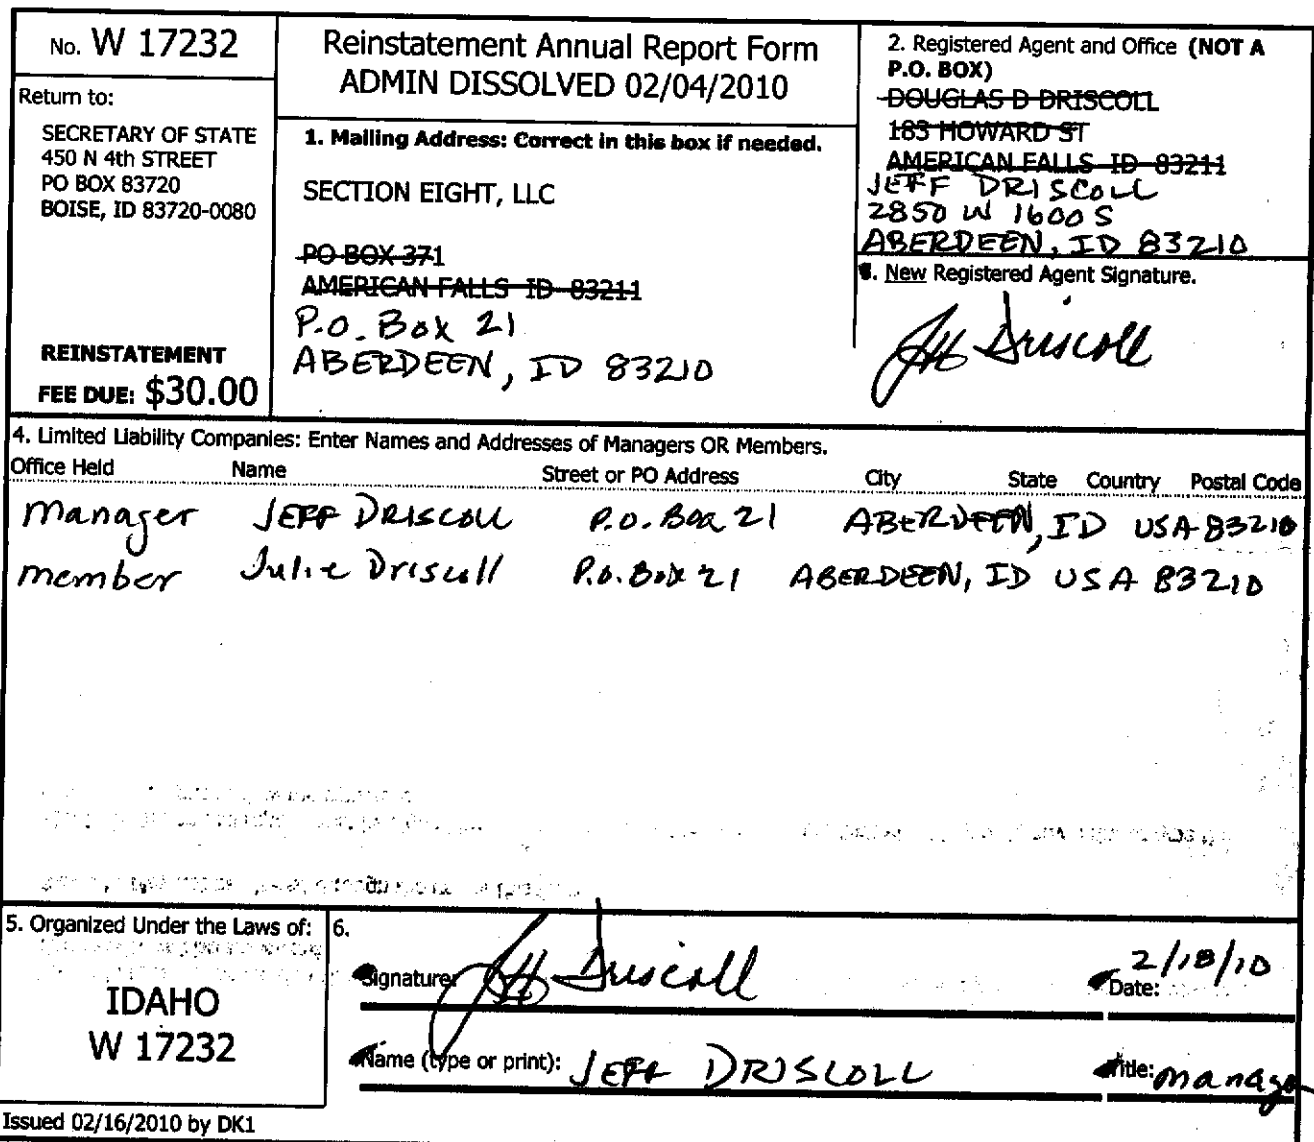 No. W 17232
Return to:
SECRETARY OF STATE
450 N 4th STREET
PO BOX 83720
BOISE, ID 83720-0080
REINSTATEMENT
FEE DUE: $30.00
Reinstatement Annual Report Form
ADMIN DISSOLVED 02/04/2010
1. Mailing Address: Correct in this box if needed.
SECTION EIGHT, LLC
PO BOX 371
AMERICAN FALLS ID 83211
P.O. Box 21
ABERDEEN, ID 83210
2. Registered Agent and Office (NOT A
P.O. BOX)
DOUGLAS D DRISCOLL
183 HOWARD ST
AMERICAN FALLS ID 83211
JEFF DRISCOLL
2850 W 1600 S
ABERDEEN, ID 83210
New Registered Agent Signature.
Jeff Driscoll
4. Limited Liability Companies: Enter Names and Addresses of Managers OR Members.
Office Held Name Street or PO Address City State Country Postal Code
Manager JEFF DRISCOLL P.O. Box 21 ABERDEEN, ID USA 83210
member Julie Driscoll P.O. Box 21 ABERDEEN, ID USA 83210
5. Organized Under the Laws of:
IDAHO
W 17232
6.
Signature: Jeff Driscoll
Date: 2/18/10
Name (type or print): JEFF DRISCOLL
Title: manager
Issued 02/16/2010 by DK1